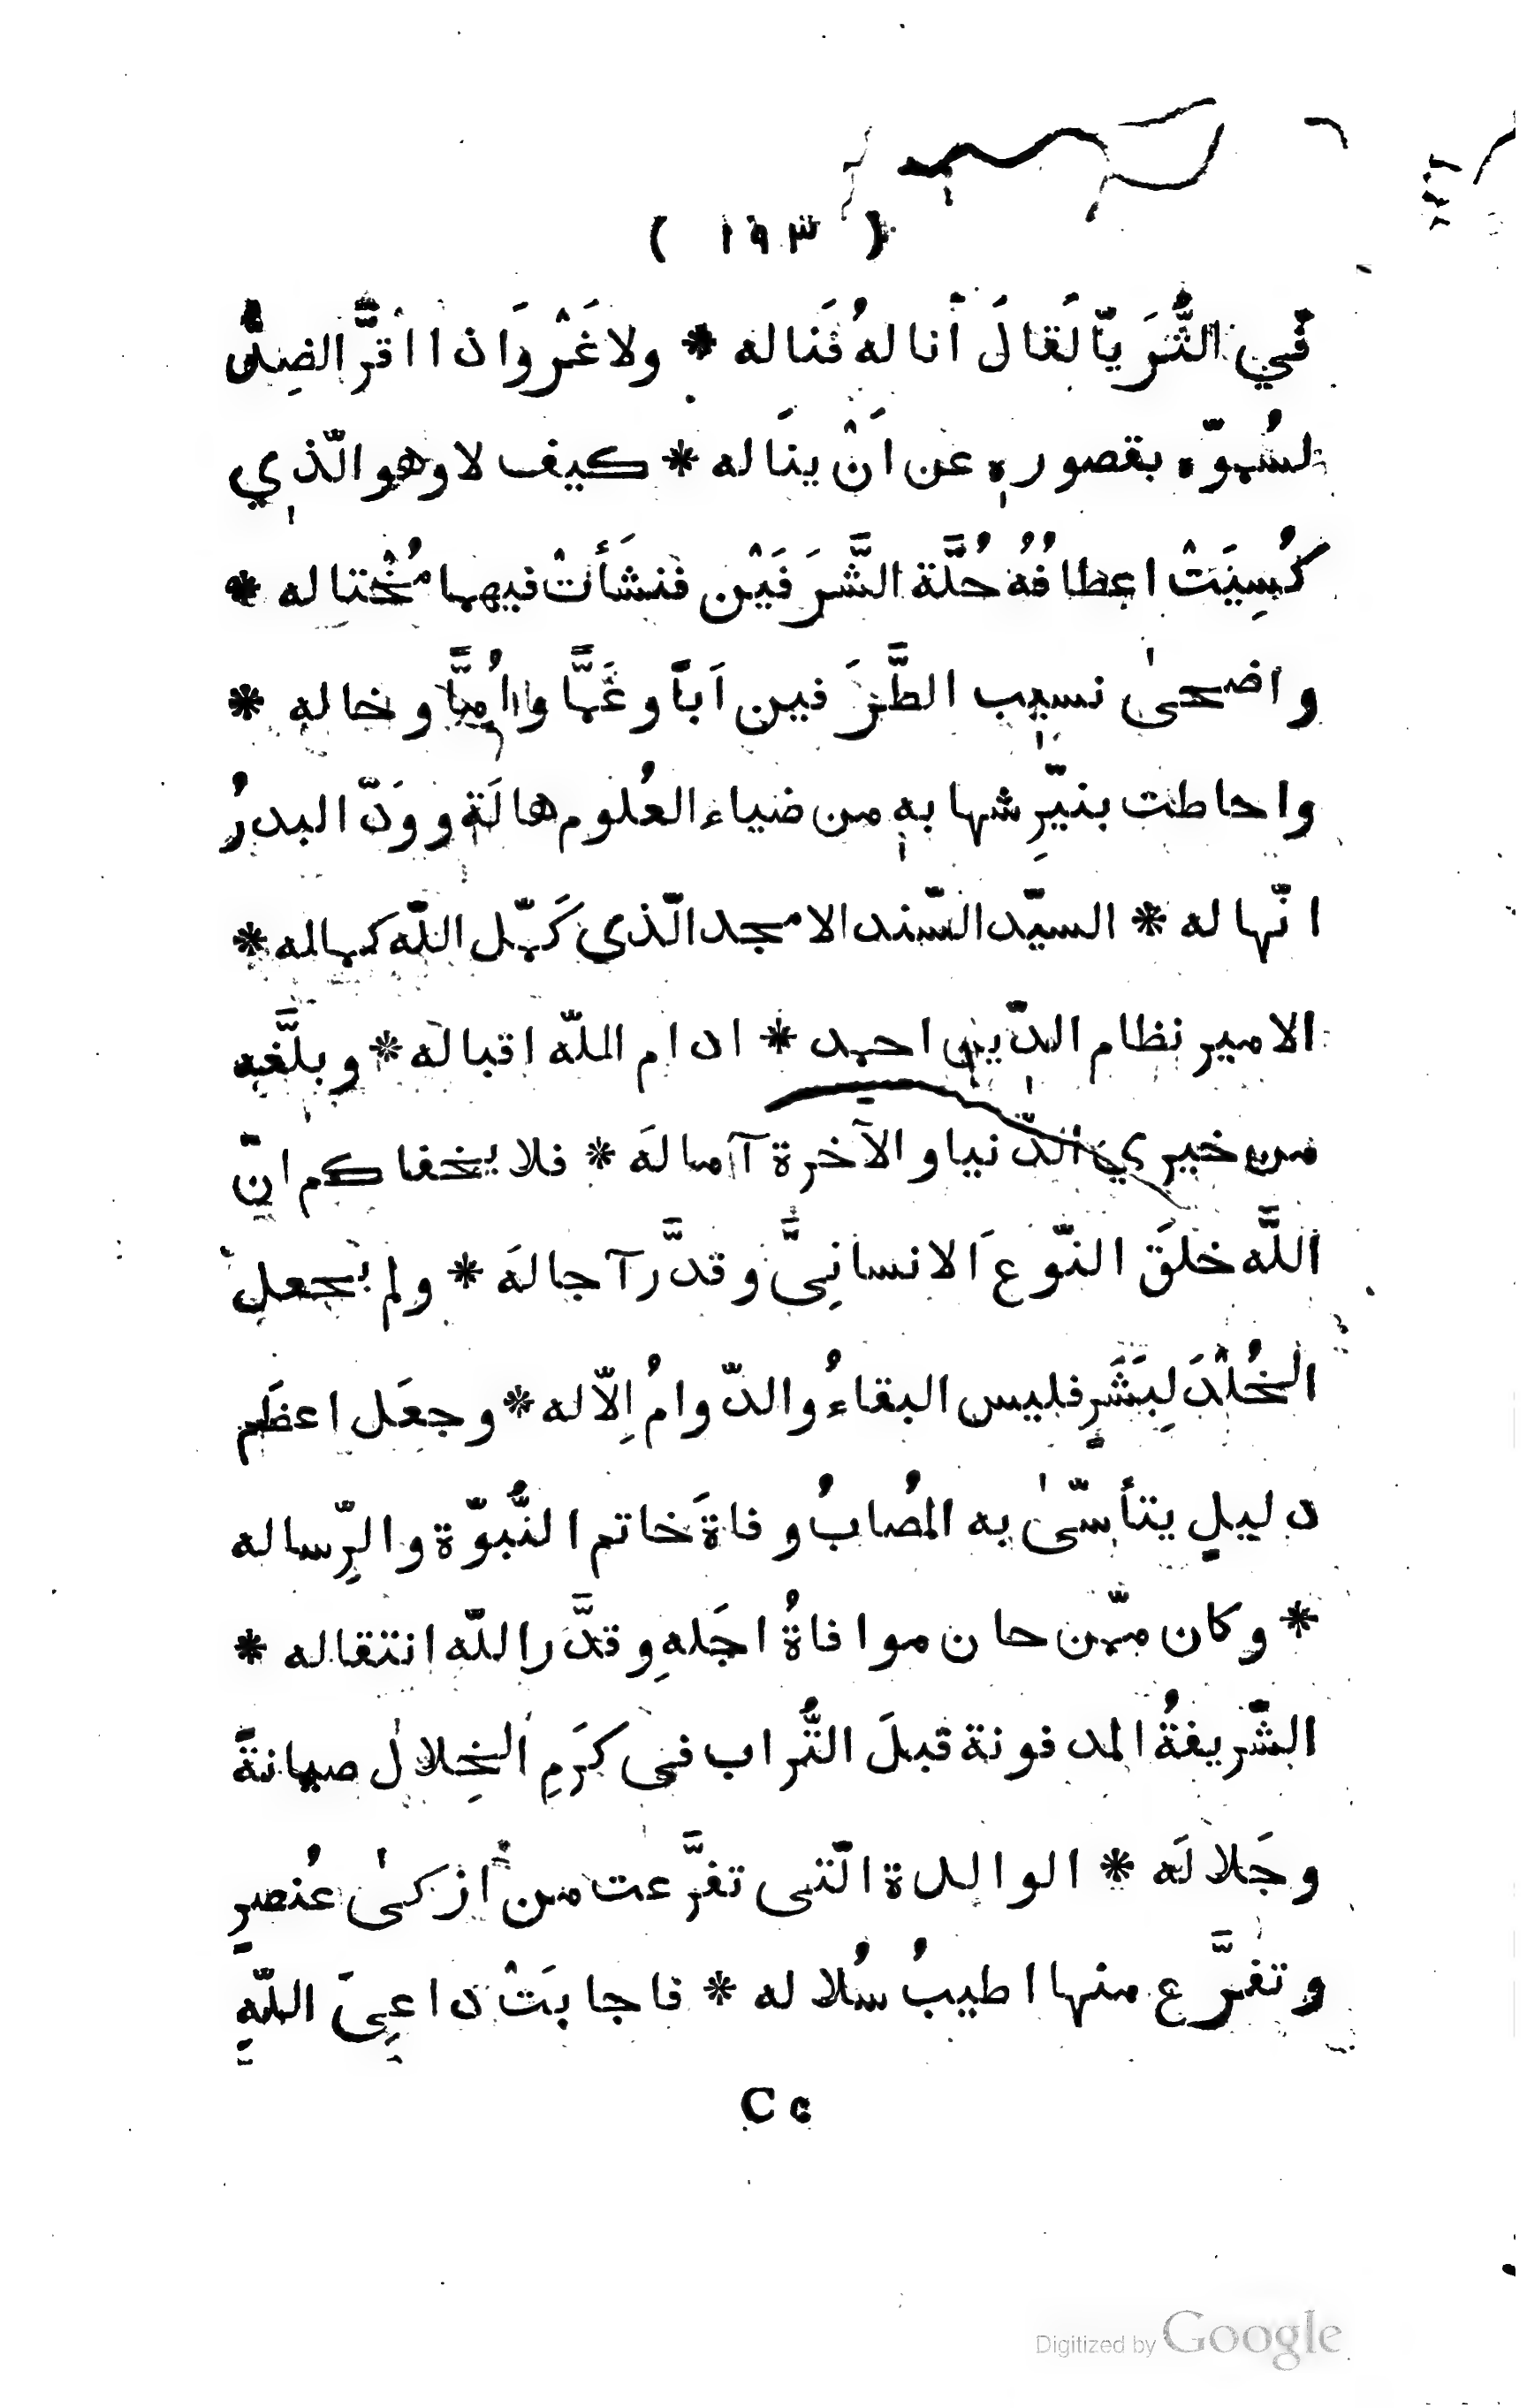 ( ١٩٣ )
في الثُّرَيّا لَقالَ أنا لهُ فَناله * ولا غَرْوَ اذا اقرَّ الضِدُّ
لسُموّه بقصوره عن اَنْ ينَاله * كيف لا وهو الّذي
كُسِيَتْ اعطافُهُ حُلَّة الشَّرَفَيْن فنشَأتْ فيهما مُخْتاله *
واضحىٰ نسيب الطَّرَفين اَباً وعَمًّا واُمًّا وخاله *
واحاطت بنيّرِ شهابهِ من ضياء العُلوم هالَة وودَّ البدرُ
انّها له * السيّد السّند الامجد الّذي كَمّل اللّه كماله *
الامير نظام الدّين احمد * ادام اللّه اقباله * وبلَّغه
من خيري الدّنيا والآخرة آمالهَ * فلا يخفاكم انّ
اللَّه خلَقَ النّوعَ الانسانِيَّ وقدَّر آجالهَ * ولم يجعل
الخُلْدَ لِبَشَرٍ فليس البقاءُ والدّوامُ اِلاّ له * وجعَل اعظَم
دليلٍ يتأسّىٰ به المُصابُ وفاةَ خاتم النُّبوّة والرِّساله
* وكان ممّن حان موافاةُ اجَلهِ وقدَّر اللّه انتقاله *
الشّريفةُ المدفونة قبلَ التُّراب في كَرَمِ الخِلال صيانةً
وجَلالَه * الوالدة الّتي تفرَّعت من أزكىٰ عُنصرٍ
وتفرَّع منها اطيبُ سُلاله * فاجابَتْ داعِيَ اللّهِ
C c
Digitized by Google